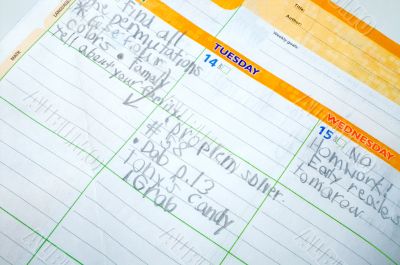 Title:
Author:
Weekly goals:
Find all
the permutations
of your
colors • family
tell about your
TUESDAY
14
• problem solver
# 28
• Dab p.13
Tony's candy
Grab
WEDNESDAY
15
No
HomWork!
Early readers
tomarow